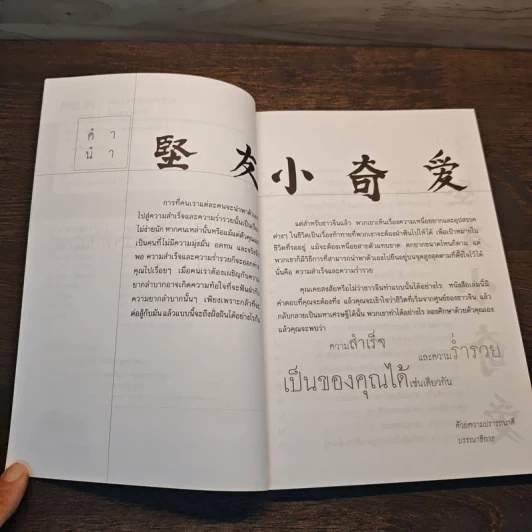 คำ
นำ
堅 友 小 奇 爱
การที่คนเราแต่ละคนจะนำพาตัวเอง
ไปสู่ความสำเร็จและความร่ำรวยนั้นเป็นเรื่อง
ไม่ง่ายนัก หากคนเหล่านั้นหรือแม้แต่ตัวคุณเอง
เป็นคนที่ไม่มีความมุ่งมั่น อดทน และจริงจัง
พอ ความสำเร็จและความร่ำรวยก็จะออกห่าง
คุณไปเรื่อยๆ เมื่อคนเราต้องเผชิญกับความ
ยากลำบากอาจเกิดความท้อใจที่จะฟันฝ่ากับ
ความยากลำบากนั้นๆ เพียงเพราะกลัวที่จะ
ต่อสู้กับมัน แล้วแบบนี้จะถึงฝั่งฝันได้อย่างไรกัน
แต่สำหรับชาวจีนแล้ว พวกเขาเห็นเรื่องความเหนื่อยยากและอุปสรรค
ต่างๆ ในชีวิตเป็นเรื่องท้าทายที่พวกเขาจะต้องฝ่าฟันไปให้ได้ เพื่อเป้าหมายใน
ชีวิตที่รออยู่ แม้จะต้องเหนื่อยสายตัวแทบขาด ตกยากขนาดไหนก็ตาม แต่
พวกเขาก็มีวิธีการที่สามารถนำพาตัวเองไปยืนอยู่บนจุดสูงสุดตามที่ตั้งใจไว้ได้
นั่นคือ ความสำเร็จและความร่ำรวย
คุณเคยสงสัยหรือไม่ว่าชาวจีนทำแบบนั้นได้อย่างไร หนังสือเล่มนี้มี
คำตอบที่คุณจะต้องทึ่ง แล้วคุณจะเข้าใจว่าชีวิตที่เริ่มจากศูนย์ของชาวจีน แล้ว
กลับกลายเป็นมหาเศรษฐีได้นั้น พวกเขาทำได้อย่างไร ลองศึกษาด้วยตัวคุณเอง
แล้วคุณจะพบว่า
ความสำเร็จ
และความร่ำรวย
เป็นของคุณได้เช่นเดียวกัน
ด้วยความปรารถนาดี
บรรณาธิการ